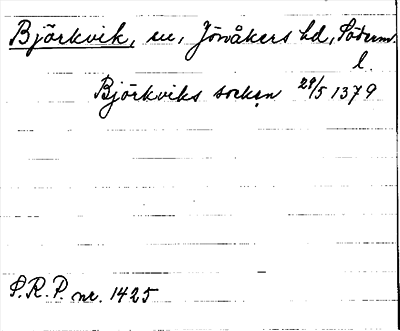 Björkvik, sn, Jönåkers hd, Söderm.
l.
Björkviks socken 29/5 1379
S.R.P. nr. 1425